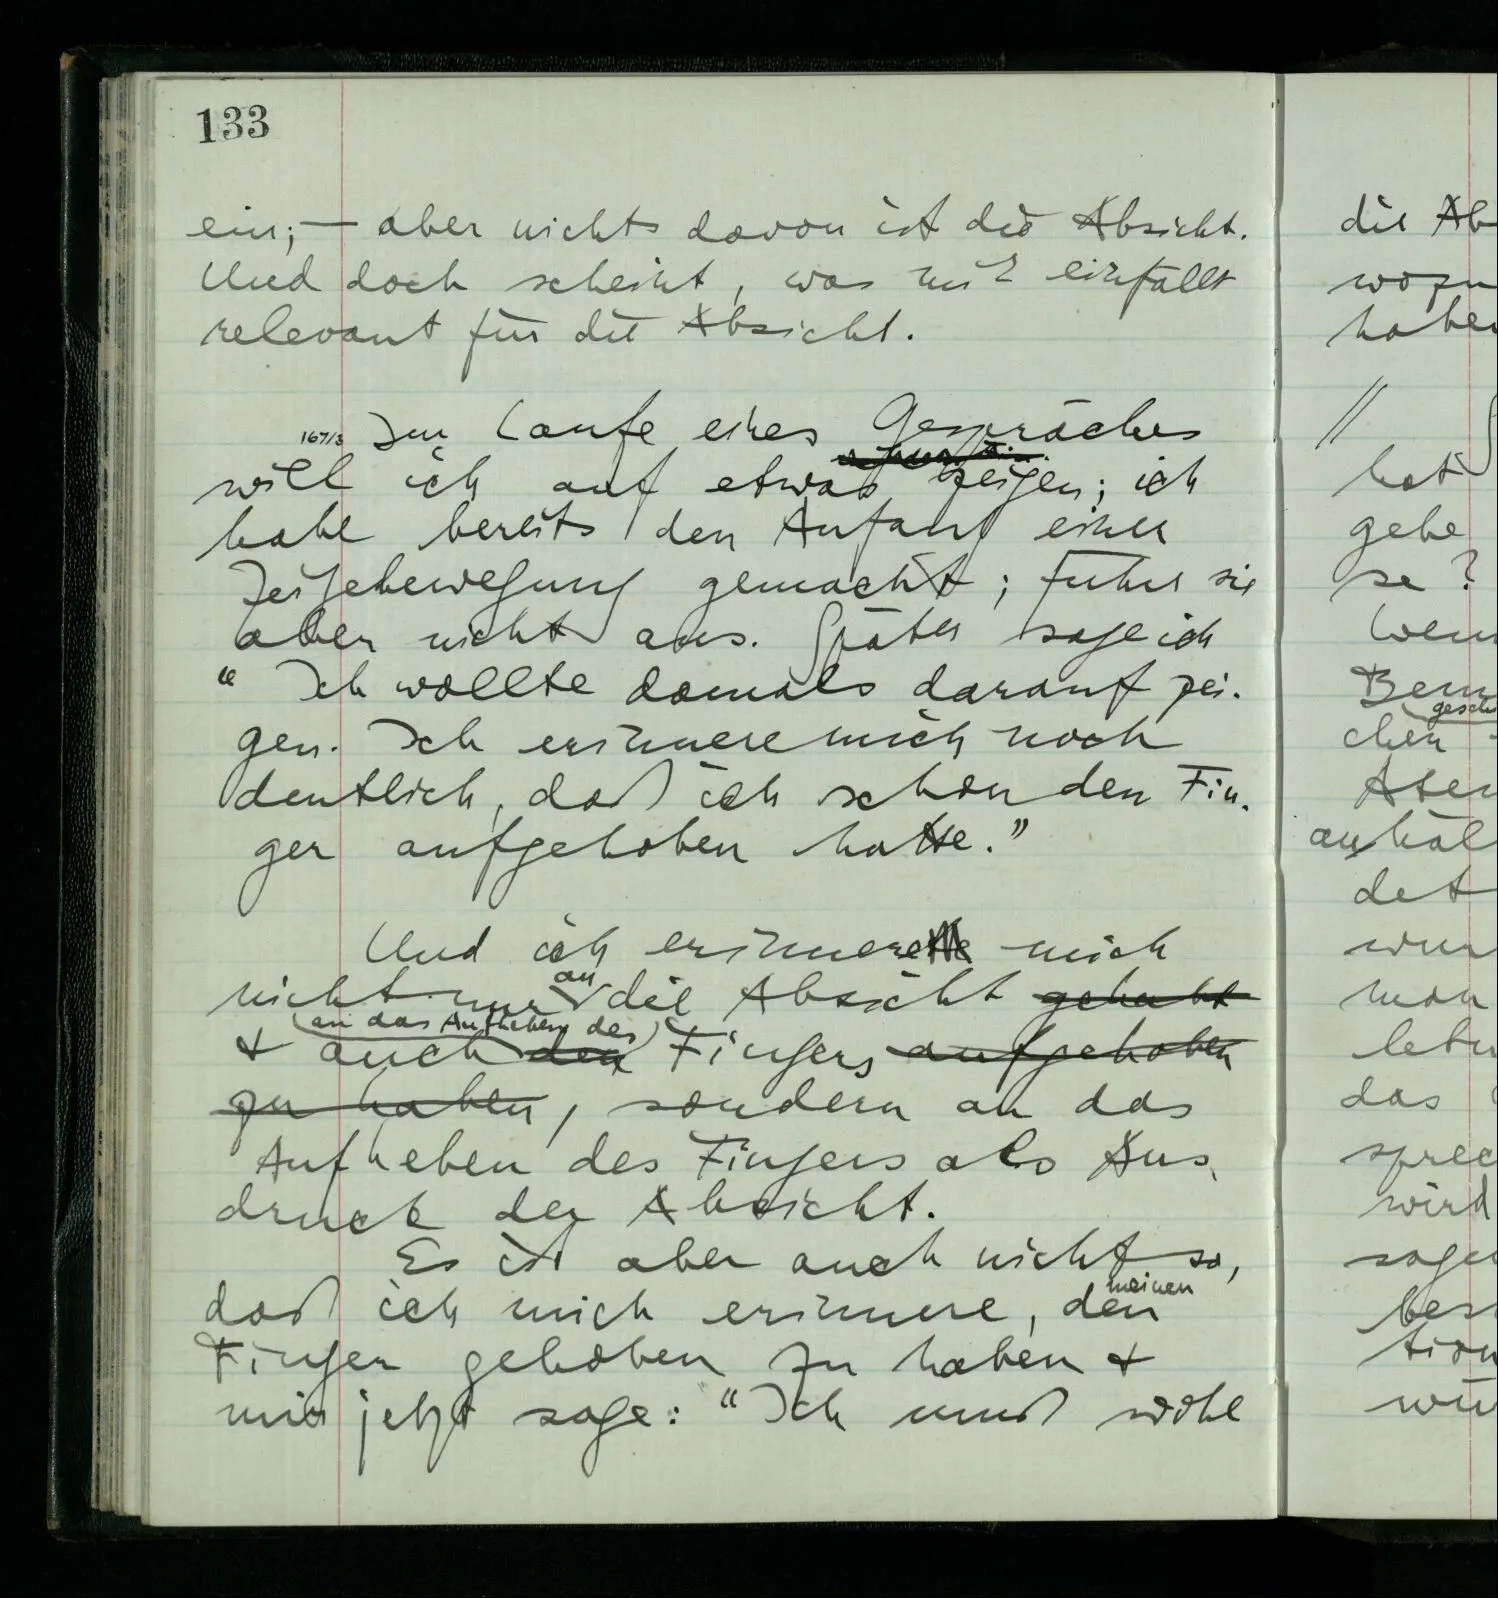 133
ein; — aber nichts davon ist die Absicht.
Und doch scheint, was mir einfällt
relevant für die Absicht.
Im Laufe eines Gespräches
will ich auf etwas zeigen; ich
habe bereits den Anfang einer
Zeigebewegung gemacht; führe sie
aber nicht aus. Später sage ich
“Ich wollte damals darauf zei-
gen. Ich erinnere mich noch
deutlich, daß ich schon den Fin-
ger aufgehoben hatte.”
Und ich erinnere mich
an
nicht nur die Absicht gehabt
an das Aufheben des
& auch den Fingers aufgehoben
zu haben, sondern an das
Aufheben des Fingers als Aus-
druck der Absicht.
Es ist aber auch nicht so,
meinen
daß ich mich erinnere, den
Finger gehoben zu haben &
mir jetzt sage: “Ich muß wohl
die Ab
//
hat
gebe
se?
det
man
das
wird